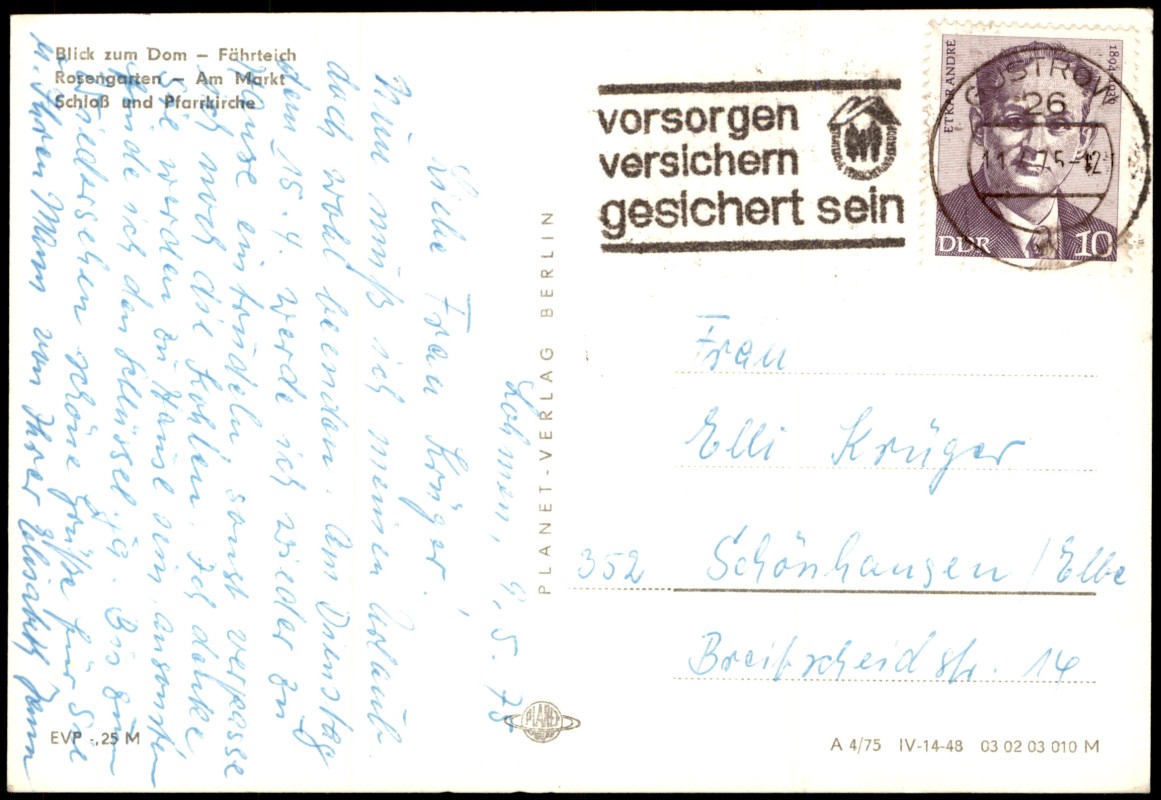 Blick zum Dom – Fährteich
Rosengarten – Am Markt
Schloß und Pfarrkirche
Lohmen, 9. 5. 75
Liebe Frau Krüger!
Nun muß ich meinen Urlaub
doch wohl beenden. Am Dienstag
dem 15.4. werde ich wieder zu
Hause eintrudeln, sonst verpasse
ich noch die Kohlen. Ich denke,
Sie werden zu Hause sein, ansonsten
finde ich den Schlüssel ja. Bis zum
Wiedersehen schöne Grüße für Sie
u. Ihren Mann von Ihrer Elisabeth
EVP -,25 M
PLANET-VERLAG BERLIN
PLANET
vorsorgen
versichern
gesichert sein
GÜSTROW
26
11. 75-12
ETKAR ANDRÉ
1894-1936
DDR
10
Frau
Elli Krüger
352 Schönhausen/Elbe
Breitscheidstr. 14
A 4/75 IV-14-48 03 02 03 010 M